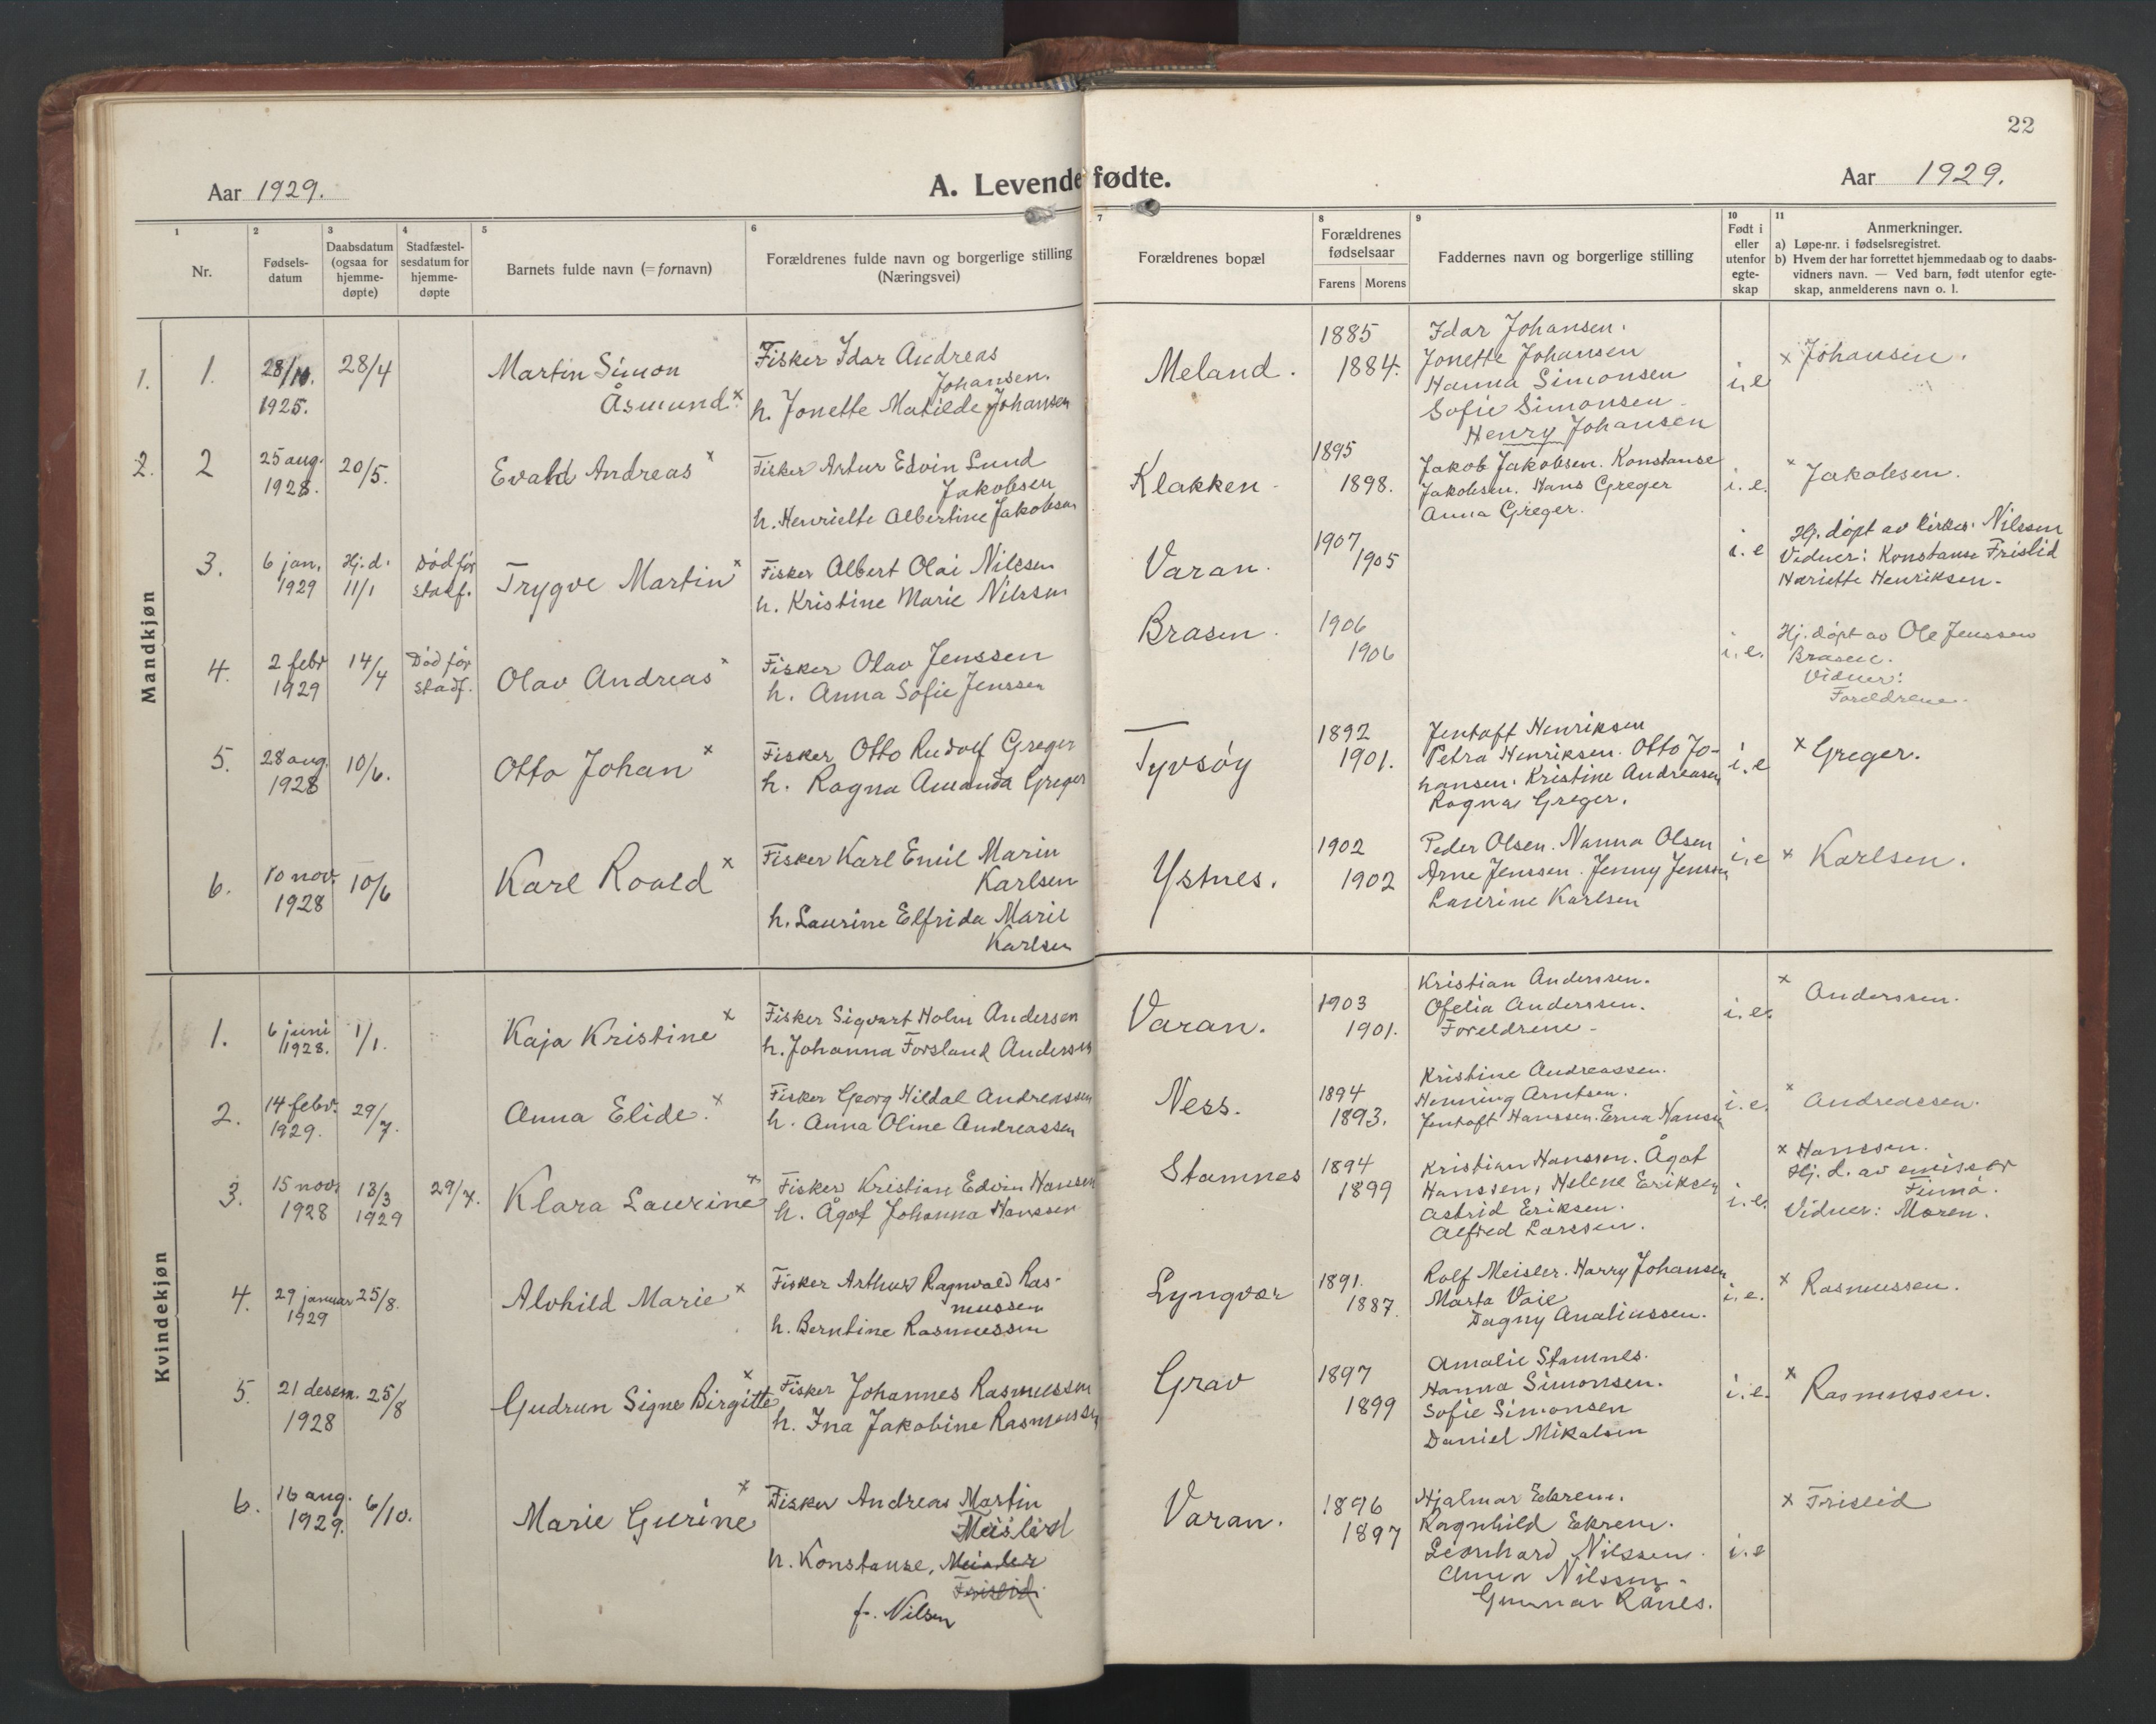 22
Aar 1929.
A. Levendefødte.
Aar 1929.
1
2
3
4
5
6
7
8
9
10
11
Nr.
Fødsels-
datum
Daabsdatum
(ogsaa for
hjemme-
døpte)
Stadfæstel-
sesdatum for
hjemme-
døpte
Barnets fulde navn (= fornavn)
Forældrenes fulde navn og borgerlige stilling
(Næringsvei)
Forældrenes bopæl
Forældrenes
fødselsaar
Farens
Morens
Faddernes navn og borgerlige stilling
Født i
eller
utenfor
egte-
skap
Anmerkninger.
a) Løpe-nr. i fødselsregistret.
b) Hvem der har forrettet hjemmedaab og to daabs-
vidners navn. — Ved barn, født utenfor egte-
skap, anmelderens navn o. l.
Mandkjøn
1.
1.
28/10.
1925.
28/4
Martin Simon
Åsmund. x
Fisker Idar Andreas
Johansen.
h. Jonette Matilde Johansen
Meland.
1885
1884.
Idar Johansen.
Jonette Johansen
Hanna Simonsen
Sofie Simonsen
Henry Johansen
i. e
x Johansen.
2.
2
25 aug.
1928.
20/5.
Evald Andreas x
Fisker Artur Edvin Lund
Jakobsen
h. Henriette Albertine Jakobsen
Klakken
1895
1898.
Jakob Jakobsen. Konstanse
Jakobsen. Hans Greger
Anna Greger.
i. e.
x Jakobsen.
3.
6 jan.
1929
Hj. d.
11/1
Død før
stadf.
Trygve Martin x
Fisker Albert Olai Nilssen
h. Kristine Marie Nilssen
Varan.
1907
1905
i. e
Hj. døpt av Nilssen
Vidner: Konstanse Frislid
Henriksen.
4.
2 febr
1929
14/4
Død før
stadf.
Olav Andreas x
Fisker Olav Jenssen
h. Anna Sofie Jenssen
Brasen.
1906
1906
i. e.
Hj. døpt av Ole Jenssen
Brasen.
Vidner:
Foreldrene.
5.
28 aug.
1928
10/6.
Otto Johan x
Fisker Otto Rudolf Greger
h. Ragna Amanda Greger
Tyvsøy
1892
1901.
Jentoft Henriksen
Petra Henriksen. Otto Jo-
hansen. Kristine Andreasen
Ragna Greger.
i. e
x Greger.
6.
10 nov.
1928
10/6
Karl Roald x
Fisker Karl Emil Marin
Karlsen
h. Laurine Elfrida Marie
Karlsen
Ystnes.
1902
1902
Peder Olsen. Nanna Olsen
Arne Jenssen. Jenny Jenssen
Laurine Karlsen
i. e
x Karlsen.
Kvindekjøn
1.
6 juni
1928.
1/1.
Kaja Kristine x
Fisker Sigvart Holm Andersen
h. Johanna Forsland Anderssen
Varan.
1903
1901.
Kristian Anderssen.
Ofelia Anderssen.
Foreldrene
i. e.
x Anderssen.
2.
14 febr.
1929.
29/7.
Anna Elide. x
Fisker Georg Hildal Andreassen
h. Anna Oline Andreassen
Ness.
1894
1893.
Kristine Andreassen.
Henning Arntsen.
Jentoft Hanssen. Erna Hanssen
i. e.
x Andreassen.
3.
15 nov.
1928
13/3
1929
29/7.
Klara Laurine x
Fisker Kristian Edvin Hanssen
h. Ågot Johanna Hanssen
Stamnes
1894
1899
Kristian Hanssen. Ågot
Hanssen, Helene Eriksen
Astrid Eriksen.
Alfred Larssen.
i. e.
x Hanssen.
Hj. d. av emissær
Finnø.
Vidner: Moren.
4.
29 januar
1929
25/8.
Alvhild Marie x
Fisker Arthur Ragnvald Ras-
mussen
h. Berntine Rasmussen
Lyngvær
1891.
1887.
Rolf Meisler. Harry Johansen
Marta Voie
Dagny Analiussen.
i. e.
x Rasmussen.
5.
21 desem.
1928
25/8
Gudrun Signe Birgitte x
Fisker Johannes Rasmussen
h. Ina Jakobine Rasmussen
Grav
1897
1899
Amalie Stamnes.
Hanna Simonsen.
Sofie Simonsen
Daniel Mikalsen
i. e.
x Rasmussen.
6.
16 aug.
1929.
6/10.
Marie Gurine x
Fisker Andreas Martin
h. Konstanse, Meisler
Frislid.
f. Nilsen
Varan.
1896
1897
Hjalmar Ekrem.
Ragnhild Ekrem.
Leonhard Nilssen.
Anna Nilssen.
Gunnar Rånes.
i. e
x Frislid